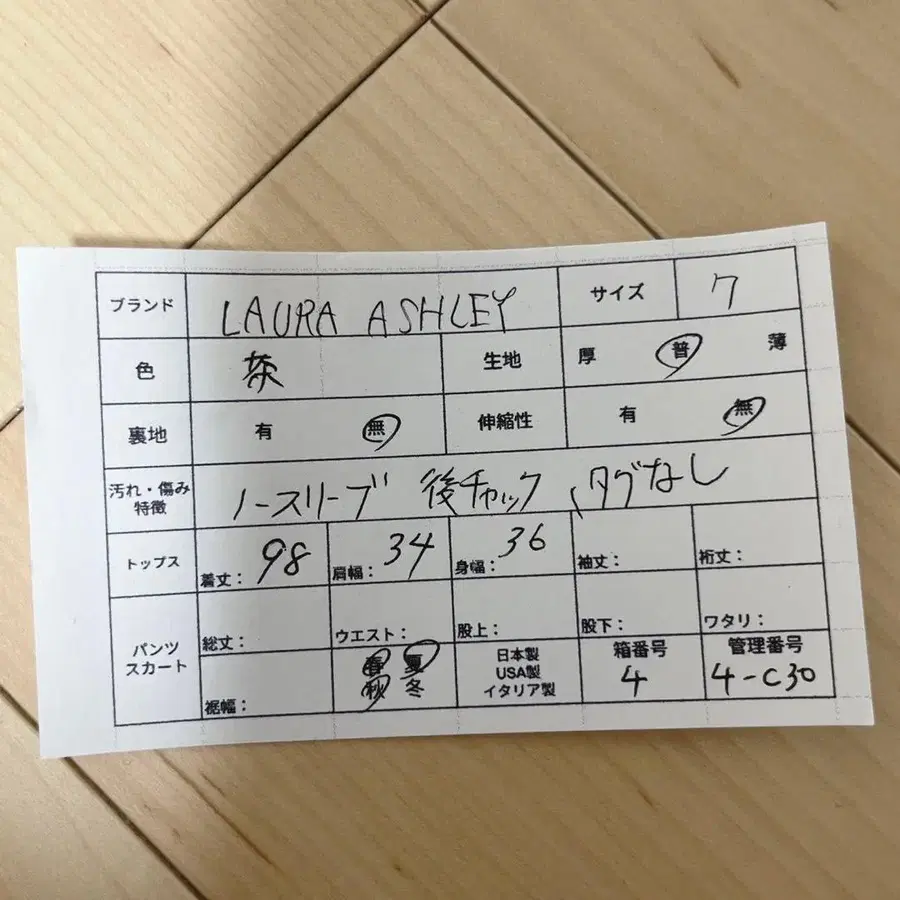 ブランド LAURA ASHLEY サイズ 7
色 茶 生地 厚 普 薄
裏地 有 無 伸縮性 有 無
汚れ・傷み
特徴 ノースリーブ 後チャック、タグなし
トップス 着丈: 98 肩幅: 34 身幅: 36 袖丈: 裄丈:
パンツ
スカート
総丈: ウエスト: 股上: 股下: ワタリ:
裾幅:
春 夏
秋 冬
日本製
USA製
イタリア製
箱番号
4
管理番号
4-C30